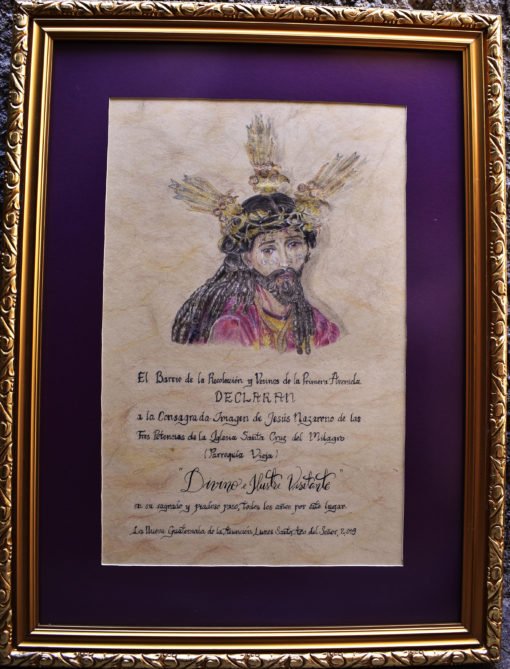 El Barrio de la Recolección y Vecinos de la Primera Avenida
DECLARAN
a la Consagrada Imagen de Jesús Nazareno de las
Tres Potencias de la Iglesia Santa Cruz del Milagro
(Parroquia Vieja)
"Divino e Ilustre Visitante"
en su sagrado y piadoso paso, todos los años por este lugar.
La Nueva Guatemala de la Asunción, Lunes Santo, Año del Señor, 2,019